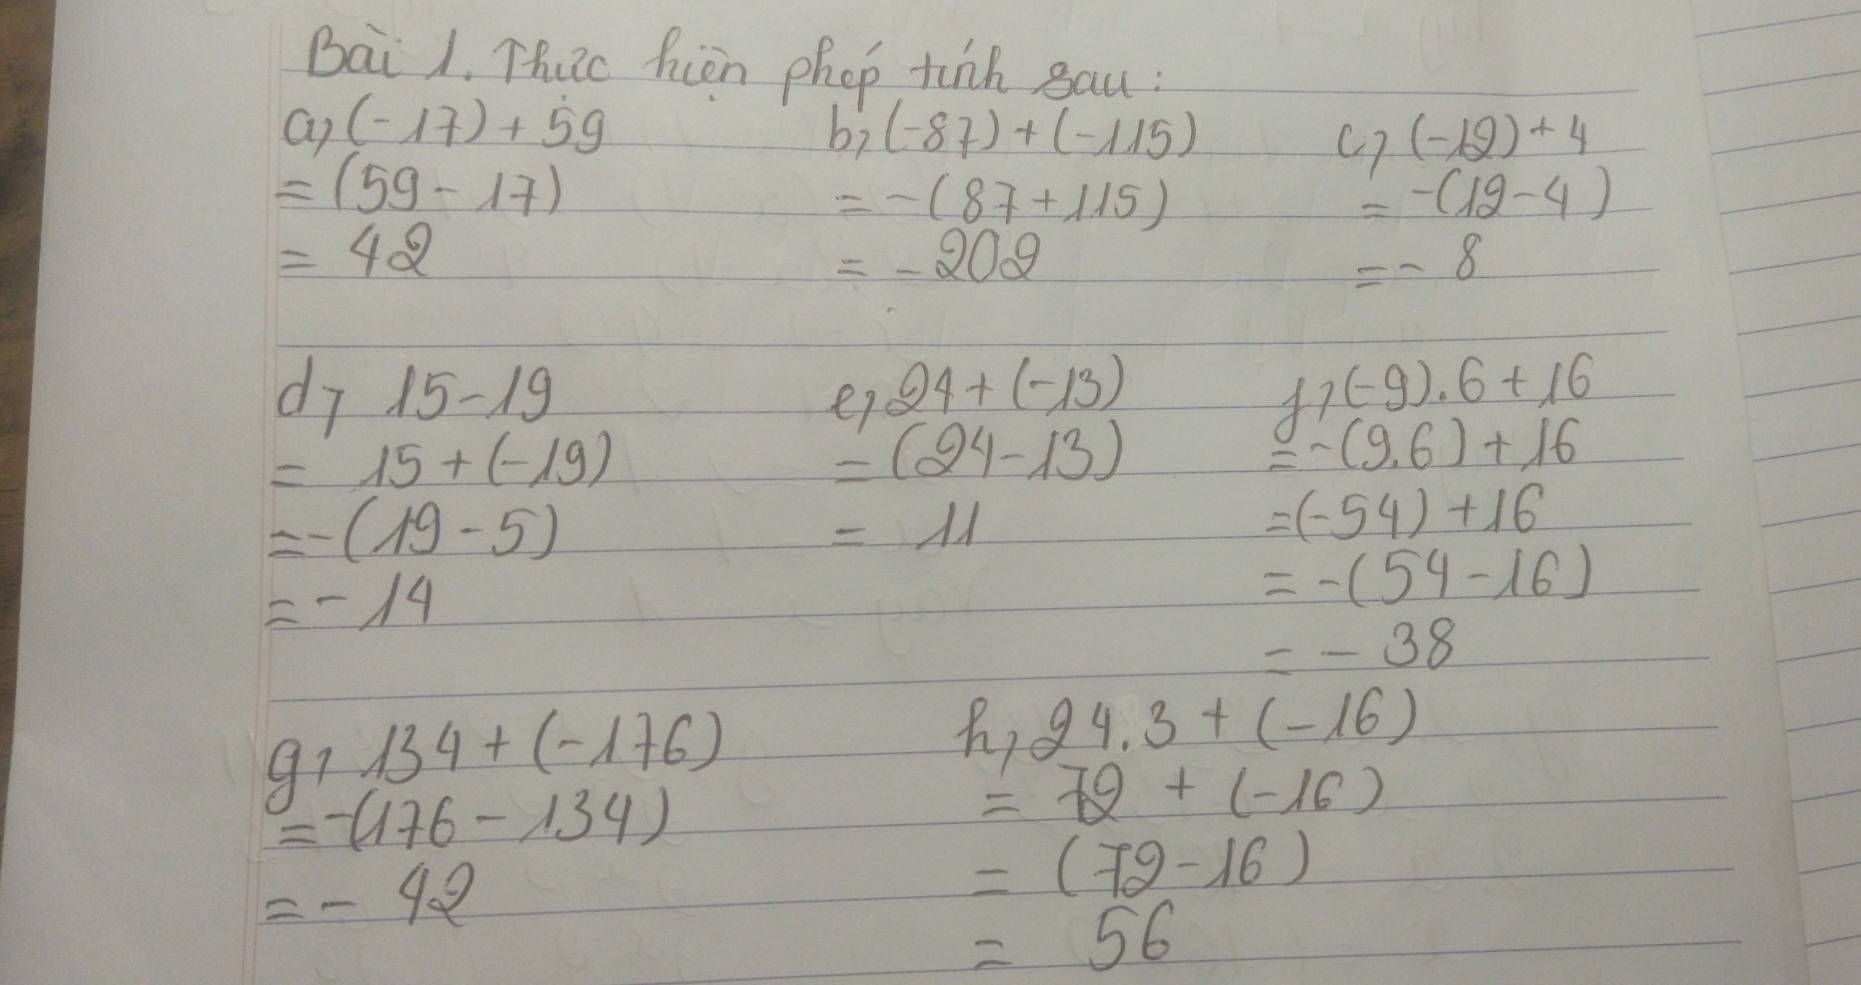 Bài 1. Thực hiện phép tính sau:
a, (-17) + 59
= (59 - 17)
= 42
b, (-87) + (-115)
= -(87 + 115)
= - 202
c, (-12) + 4
= -(12 - 4)
= - 8
d, 15 - 19
= 15 + (-19)
= -(19 - 5)
= - 14
e, 24 + (-13)
= (24 - 13)
= 11
f, (-9) . 6 + 16
= -(9.6) + 16
= (-54) + 16
= -(54 - 16)
= - 38
g, 134 + (-176)
= -(176 - 134)
= - 42
h, 24.3 + (-16)
= 72 + (-16)
= (72 - 16)
= 56